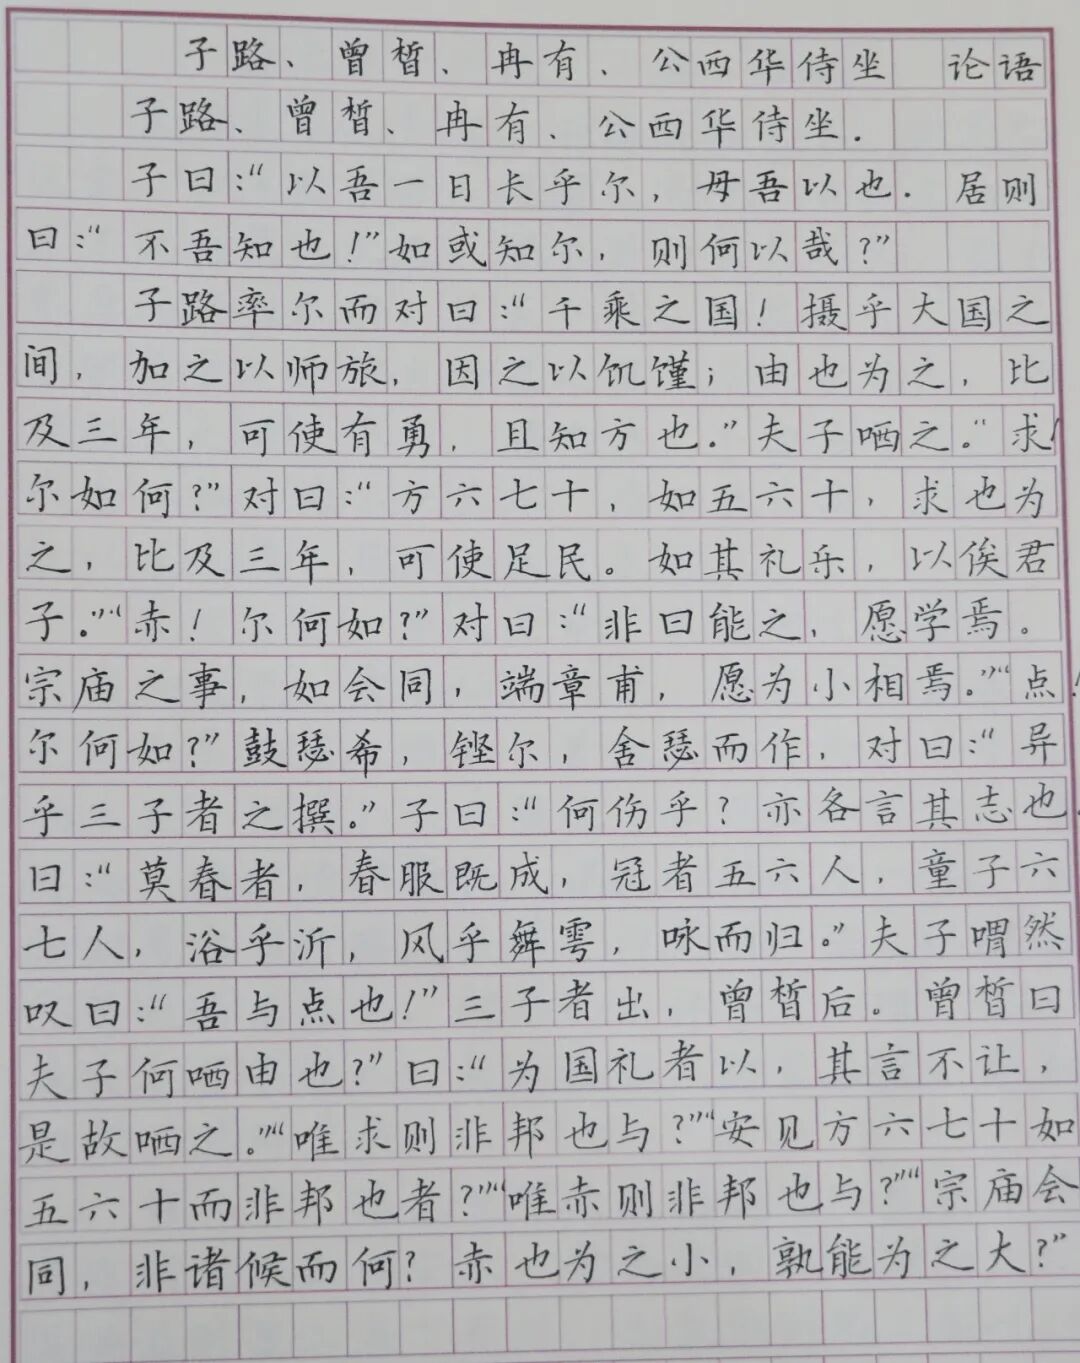 子路、曾皙、冉有、公西华侍坐 论语
子路、曾皙、冉有、公西华侍坐.
子曰:“以吾一日长乎尔,毋吾以也.居则
曰:“不吾知也!”如或知尔,则何以哉?”
子路率尔而对曰:“千乘之国!摄乎大国之
间,加之以师旅,因之以饥馑;由也为之,比
及三年,可使有勇,且知方也.”夫子哂之。“求!
尔如何?”对曰:“方六七十,如五六十,求也为
之,比及三年,可使足民。如其礼乐,以俟君
子。”“赤!尔何如?”对曰:“非曰能之,愿学焉。
宗庙之事,如会同,端章甫,愿为小相焉。”“点!
尔何如?”鼓瑟希,铿尔,舍瑟而作,对曰:“异
乎三子者之撰。”子曰:“何伤乎?亦各言其志也.
曰:“莫春者,春服既成,冠者五六人,童子六
七人,浴乎沂,风乎舞雩,咏而归。”夫子喟然
叹曰:“吾与点也!”三子者出,曾皙后。曾皙曰
夫子何哂由也?”曰:“为国礼者以,其言不让,
是故哂之。”“唯求则非邦也与?”“安见方六七十如
五六十而非邦也者?”“唯赤则非邦也与?”“宗庙会
同,非诸候而何?赤也为之小,孰能为之大?”